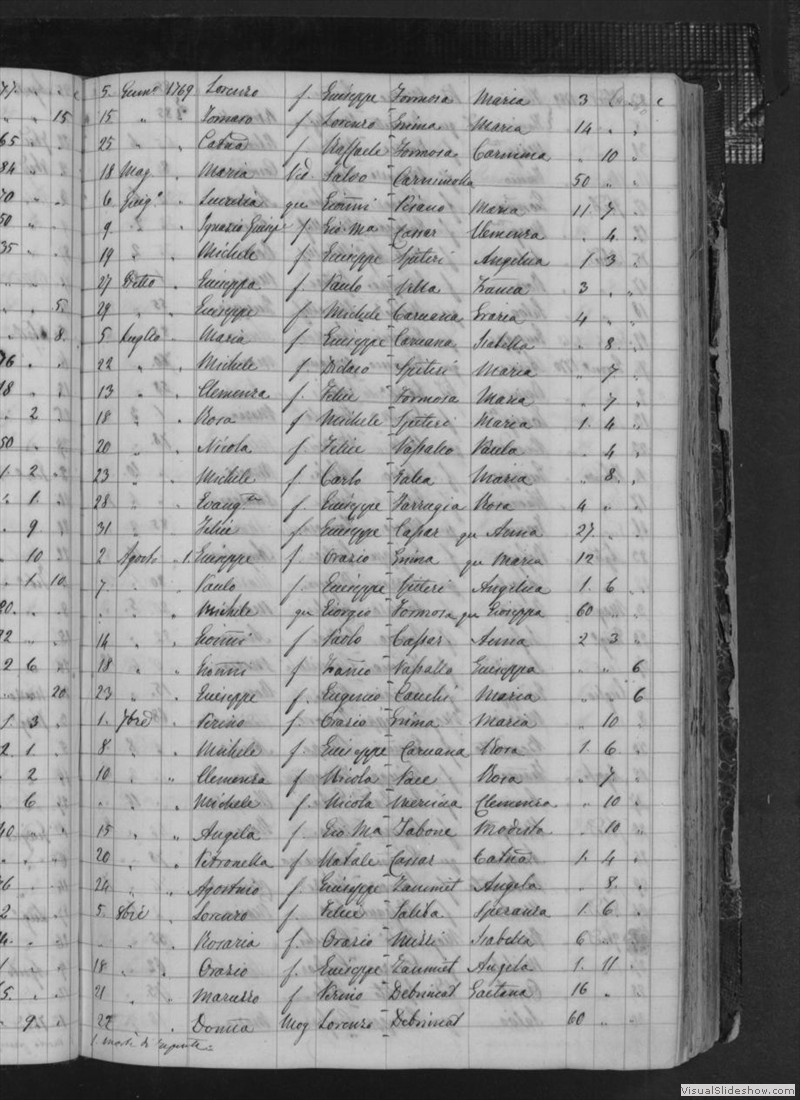 77. " "
5. Genn. 1769 Lorenzo f. Giuseppe Formosa Maria 3 6
" " 15
15 " " Tomaso f. Lorenzo Grima Maria 14 " "
65 " "
25 " " Catna f. Raffaele Formosa Carmina " 10 "
84 " "
18 Mag. " Maria Ved. Salvo Carnimolla 50 " "
70 " "
6 Giug.o " Lucrezia qu Gionni Pisano Maria 11 7 "
50 " "
9 " " Ignazio Gius f. Gio. Ma Cassar Clemenza " 4 "
35 " "
19 " " Michele f. Giuseppe Spiteri Angelica 1 3 "
27 Detto " Giuseppa f. Paulo Vella Franca 3 " "
" " 5.
29 " " Giuseppe f. Michele Caruana Grazia 4 " "
" " 8.
5 Luglio " Maria f. Giuseppe Caruana Isabella " 8. "
76 " "
22 " " Michele f. Didaco Spiteri Maria " 7 "
18 " "
13 " " Clemenza f. Felice Formosa Maria " 7 "
" 2 "
18 " " Rosa f Michele Spiteri Maria 1. 4 "
50 " "
20 " " Nicola f. Felice Vassallo Paula " 4 "
1 2 "
23 " " Michele f Carlo Falca Maria " 8. "
" 1 "
28 " " Evang.ta f. Giuseppe Farrugia Rosa 4 " "
" 9 "
31 " " Felice f Giuseppe Cassar qu Anna 27. " "
" 10 "
2 Agosto " 1. Giuseppe f. Orazio Grima qu Maria 12
" 1 10
7 " " Paulo f. Giuseppe Spiteri Angelica 1. 6 "
20. " "
" " " Michele qu Giorgio Formosa qu Gioseppa 60 " "
22 " "
14 " " Gionni f. Paolo Cassar Anna 2 3 "
2 6 "
18 " " Gionni f Franco Vassallo Giuseppa " " 6
" " 20
23 " " Giuseppe f. Eugenio Cauchi Maria " " 6
1 3 "
1. 7bre " Pirino f. Orazio Grima Maria " 10 "
2. 1 "
8. " " Michele f. Giuseppe Caruana Rosa 1. 6 "
" 2 "
10 " " Clemenza f Nicola Pace Rosa " 7 "
" 6 "
" " " Michele f. Nicola Mercieca Clemenza " 10 "
40. " "
15 " " Angela f. Gio Ma Tabone Modesta " 10 "
20 " " Petronella f. Natale Cassar Catna 1. 4 "
26 " "
24 " " Agostino f. Giuseppe Zammit Angela " 8. "
2 " "
5. 8bre " Lorenzo f. Felice Saliba Speranza 1 6 "
" " " Rosaria f. Orazio Mizzi Isabella 6 " "
18 " " Orazio f. Giuseppe Zammit Angela 1. 11 "
5. " "
21 " " Maruzzo f. Pirino Debrincat Gaetana 16 " "
" 9 "
22 " " Domca Mog Lorenzo Debrincat 60 " "
1 morte di repente
VisualSlideshow.com